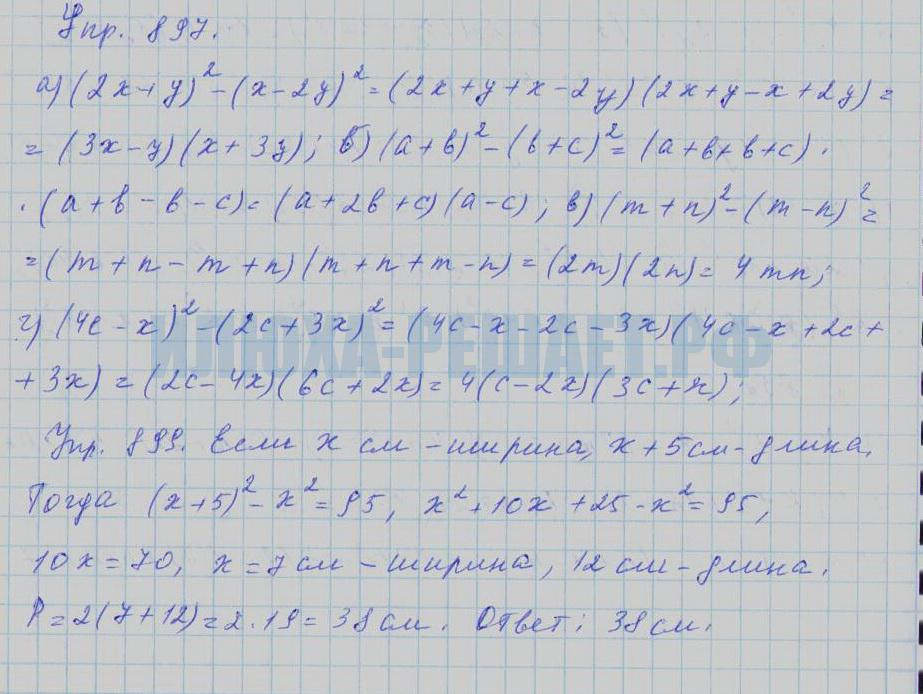 Упр. 897.
а) (2x+y)²-(x-2y)²=(2x+y+x-2y)(2x+y-x+2y)=
=(3x-y)(x+3y); б) (a+b)²-(b+c)²=(a+b+b+c)·
·(a+b-b-c)=(a+2b+c)(a-c); в) (m+n)²-(m-n)²=
=(m+n-m+n)(m+n+m-n)=(2m)(2n)=4mn;
г) (4c-x)²-(2c+3x)²=(4c-x-2c-3x)(4c-x+2c+
ИЛЮХА-РЕШАЕТ.РФ
+3x)=(2c-4x)(6c+2x)=4(c-2x)(3c+x);
Упр. 899. Если x см -ширина, x+5см-длина.
Тогда (x+5)²-x²=95, x²+10x+25-x²=95,
10x=70, x=7см -ширина, 12см-длина.
P=2(7+12)=2·19=38см. Ответ: 38см.